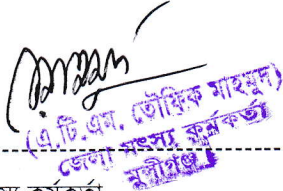 (এ.টি.এম. তৌফিক মাহমুদ)
জেলা মৎস্য কর্মকর্তা
মুন্সীগঞ্জ
কর্মকর্তা